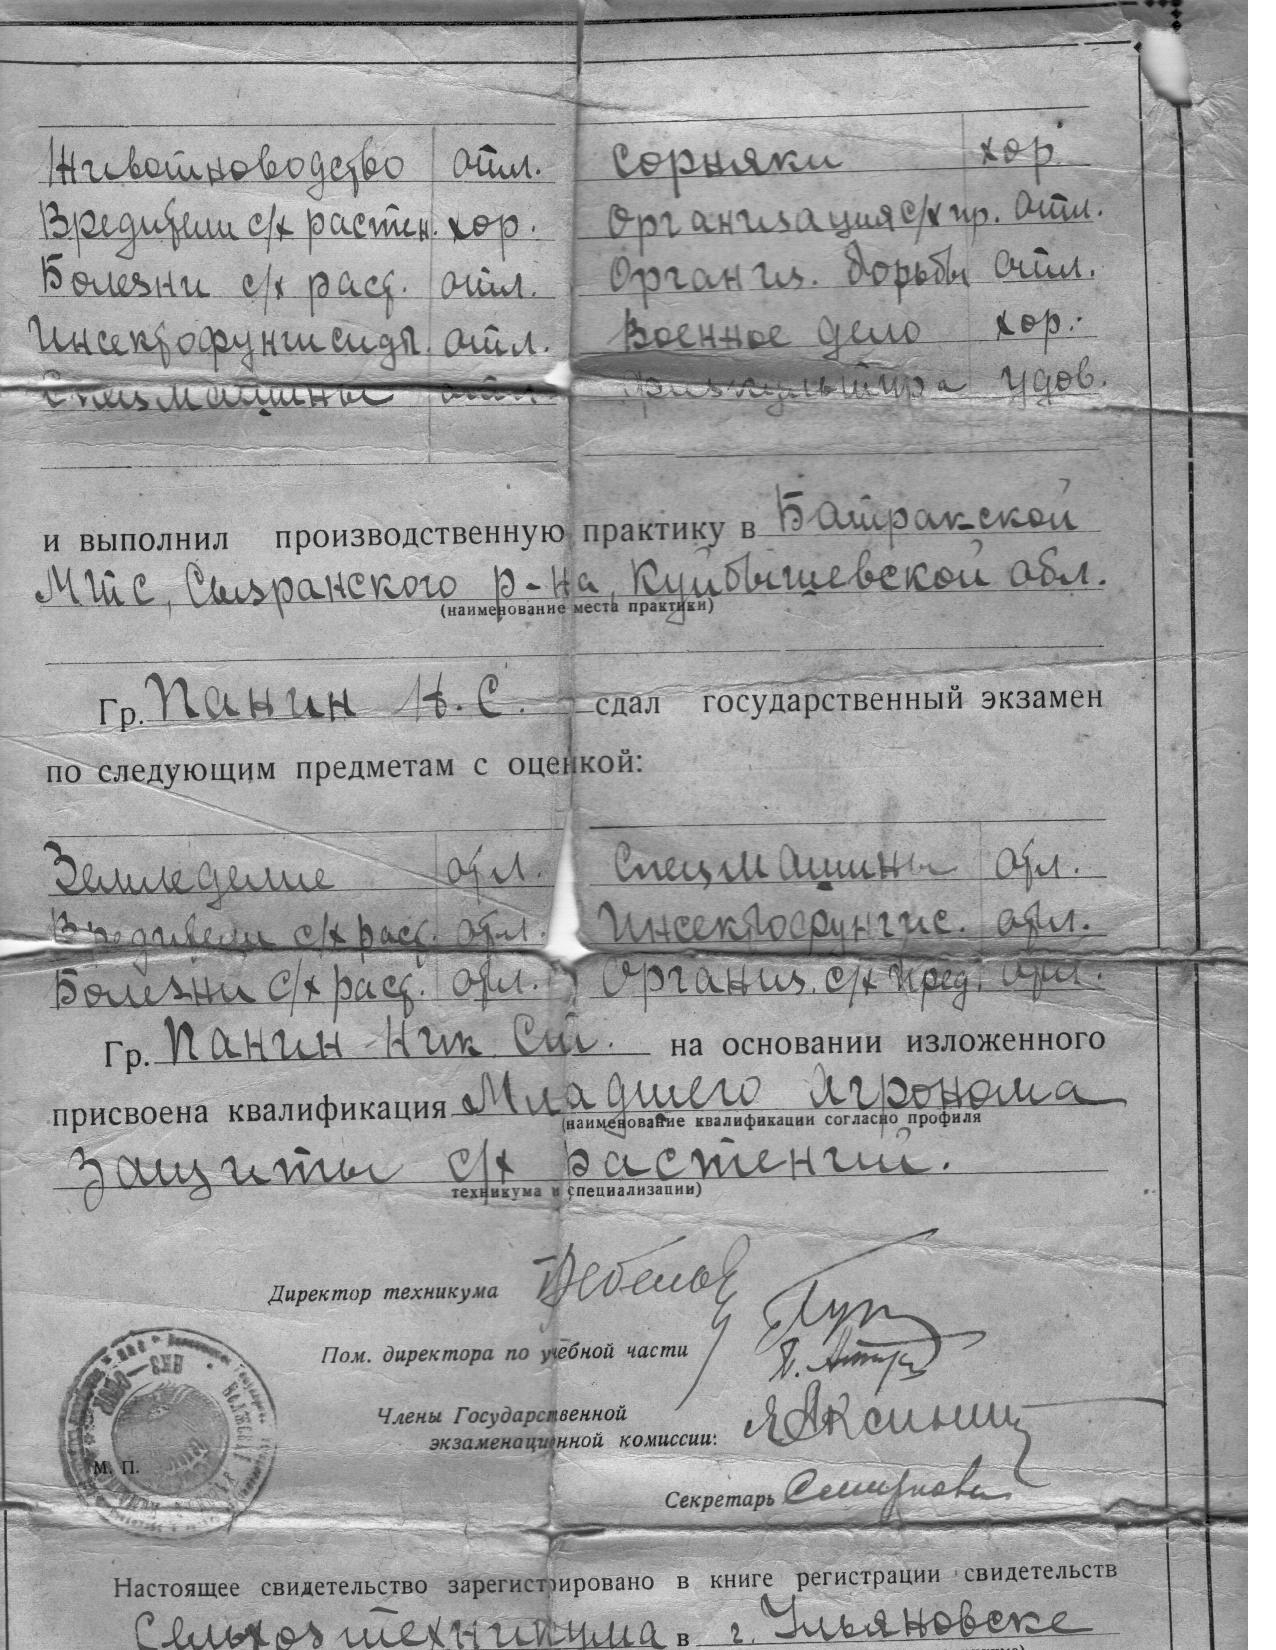 Животноводство отл. Сорняки хор.
Вредители с/х растен. хор. Организация с/х пр. отл.
Болезни с/х раст. отл. Организ. борьбы отл.
Инсектофунгисиды. отл. Военное дело хор.
Спецмашины отл. Физкультура удов.
и выполнил производственную практику в Батракской
МТС, Сызранского р-на, Куйбышевской обл.
(наименование места практики)
Гр. Панин Н. С. сдал государственный экзамен
по следующим предметам с оценкой:
Земледелие отл. Спецмашины отл.
Вредители с/х раст. отл. Инсектофунгис. отл.
Болезни с/х раст. отл. Организ. с/х пред. отл.
Гр. Панин Ник. Ст. на основании изложенного
присвоена квалификация Младшего Агронома
(наименование квалификации согласно профиля
Защиты с/х растений.
техникума и специализации)
Директор техникума
Пом. директора по учебной части
Члены Государственной
экзаменационной комиссии:
М. П.
Секретарь Смирнова
Настоящее свидетельство зарегистрировано в книге регистрации свидетельств
Сельхозтехникума в г. Ульяновске